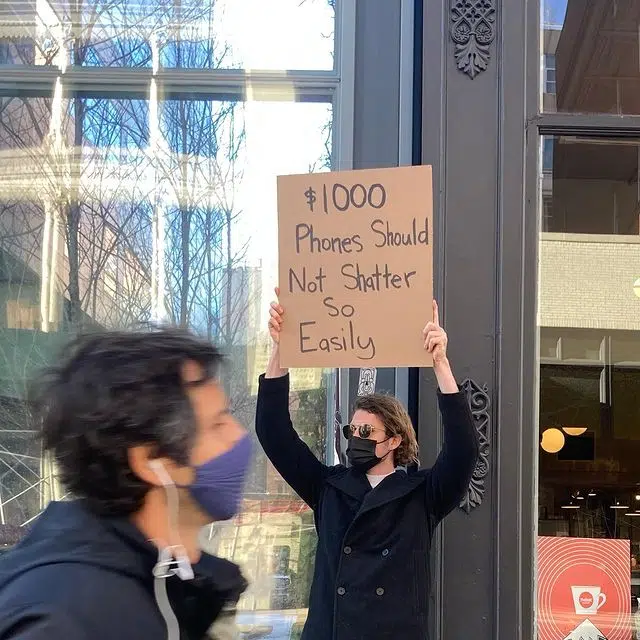 $1000
Phones Should
Not Shatter
So
Easily